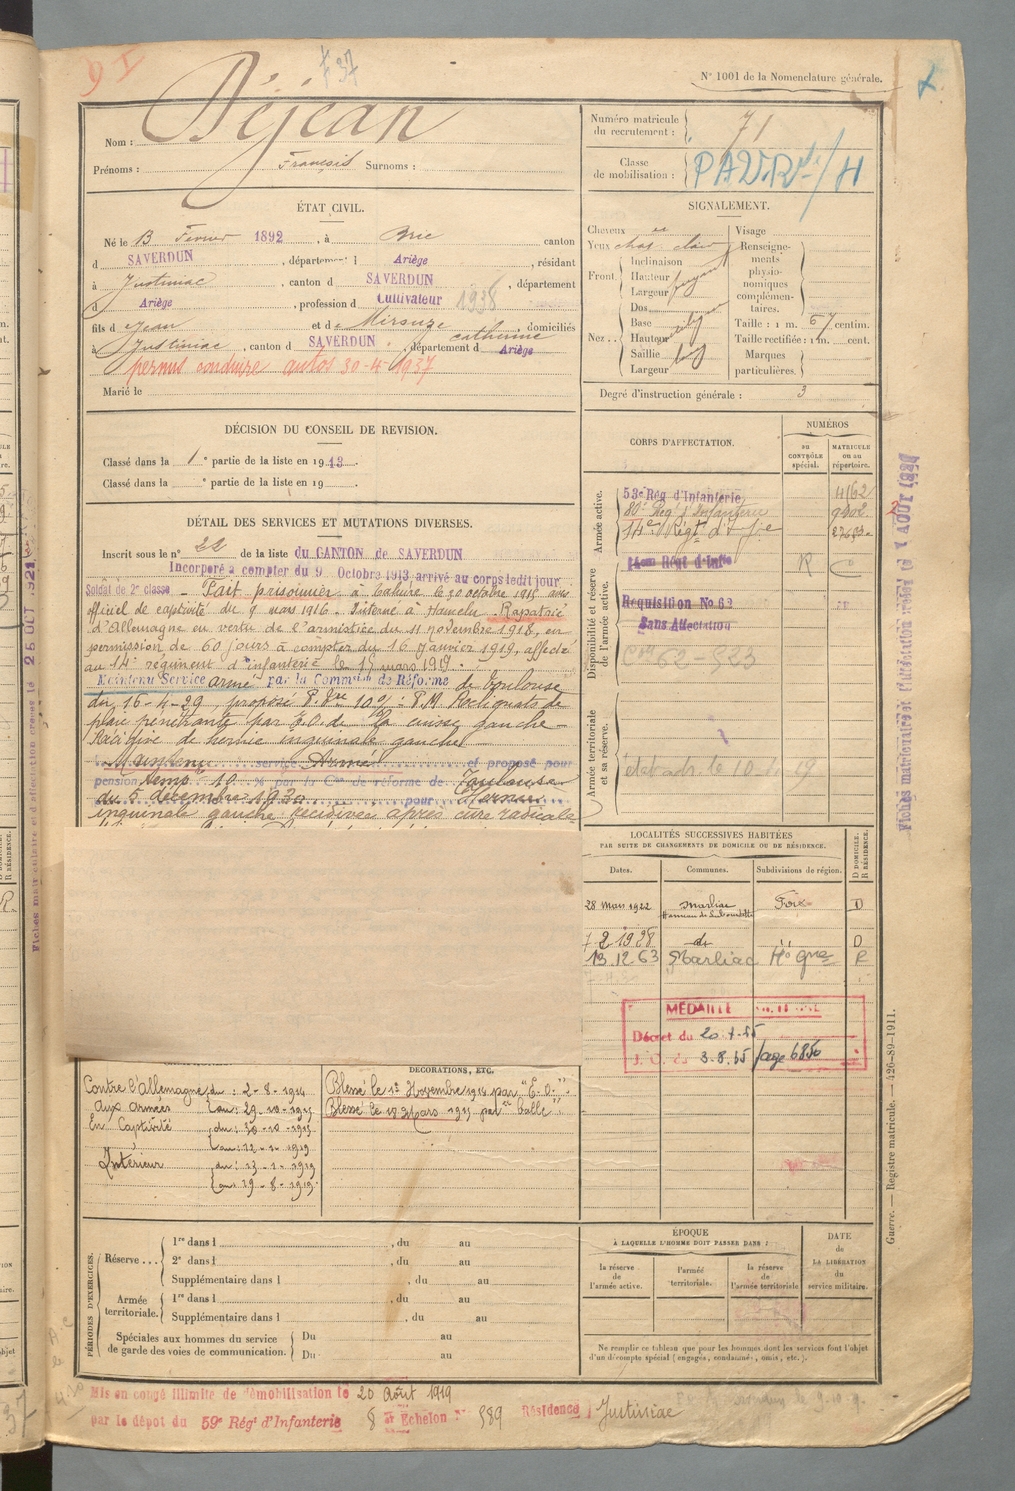 9 I
F 37
N° 1001 de la Nomenclature générale.
Nom : Déjean
Prénoms : François Surnoms :
Numéro matricule du recrutement : 71
Classe de mobilisation :
ÉTAT CIVIL.
Né le 13 Février 1892, à Brie canton
d SAVERDUN, département d Ariège, résidant
à Justiniac, canton d SAVERDUN, département
d Ariège, profession d Cultivateur 1938
fils d Jean et de Mirouze Catherine, domiciliés
à Justiniac, canton d SAVERDUN, département d Ariège
permis conduire autos 30-4-1937
Marié le
SIGNALEMENT.
Cheveux
Yeux chat. clair
Front. Inclinaison
Hauteur fuyant
Largeur
Nez.. Dos
Base
Hauteur
Saillie
Largeur
Visage
Renseignements physionomiques complémentaires.
Taille : 1 m. 67 centim.
Taille rectifiée : 1 m. cent.
Marques particulières.
Degré d'instruction générale : 3
DÉCISION DU CONSEIL DE REVISION.
Classé dans la 1e partie de la liste en 1913.
Classé dans la e partie de la liste en 19
DÉTAIL DES SERVICES ET MUTATIONS DIVERSES.
Inscrit sous le n° 22 de la liste du CANTON de SAVERDUN
Incorporé à compter du 9 Octobre 1913 arrivé au corps ledit jour
Soldat de 2e classe - Fait prisonnier à Tahure le 30 octobre 1915 avis
officiel de captivité du 9 mars 1916. Interné à Hameln. Rapatrié
d'Allemagne en vertu de l'armistice du 11 novembre 1918, en
permission de 60 jours à compter du 16 Janvier 1919, affecté
au 14e régiment d'infanterie le 17 mars 1919.
Maintenu Service armé par la Commson de Réforme de Toulouse
du 16-4-29, proposé P. 10% : P.M. Reliquats de
plaie pénétrante par E.O. de la cuisse gauche -
Récidive de hernie inguinale gauche
Maintenu service Armé et proposé pour
pension temp. 10 % par la Con de réforme de Toulouse
du 5 décembre 1930 pour Hernie
inguinale gauche récidivée après cure radicale
CORPS D'AFFECTATION.
NUMÉROS
AU CONTRÔLE spécial.
MATRICULE ou au répertoire.
Armée active.
53e Rég d'Infanterie 4162
80e Régt d'Infanterie
14e Régt d'Infie
Disponibilité et réserve de l'armée active.
14em Régt d'Inftie R C
Requisition No 62
Sans Affectation
Armée territoriale et sa réserve.
LOCALITÉS SUCCESSIVES HABITÉES
PAR SUITE DE CHANGEMENTS DE DOMICILE OU DE RÉSIDENCE.
Dates. Communes. Subdivisions de région. D DOMICILE. R RÉSIDENCE.
28 Mars 1922 Marliac Foix D
7 2 1928 do D
13.12.63 Marliac Hte Gne R
MÉDAILLE MILITAIRE
Décret du 20.7.55
J. O. du 3.8.55 page 6850
DÉCORATIONS, ETC.
Contre l'Allemagne du : 2-8-1914
aux armées au : 29-10-1915
En Captivité du : 30-10-1915
au : 12-1-1919
Intérieur du : 13-1-1919
au : 19-8-1919
Blessé le 12 Novembre 1914 par "E.O."
Blessé le 18 Mars 1915 par "balle".
PÉRIODES D'EXERCICES.
Réserve... 1re dans l , du au
2e dans l , du au
Supplémentaire dans l , du au
Armée territoriale. 1re dans l , du au
Supplémentaire dans l , du au
Spéciales aux hommes du service de garde des voies de communication. Du au
Du au
ÉPOQUE
À LAQUELLE L'HOMME DOIT PASSER DANS :
la réserve de l'armée active.
l'armée territoriale.
la réserve de l'armée territoriale
DATE de LA LIBÉRATION du service militaire.
Ne remplir ce tableau que pour les hommes dont les services font l'objet
d'un décompte spécial (engagés, condamnés, omis, etc.).
Mis en congé illimité de démobilisation le 20 Août 1919
par le dépôt du 59e Régt d'Infanterie 8e Echelon N° 989 Résidence Justiniac
Guerre. — Registre matricule. — 426-89-1911.